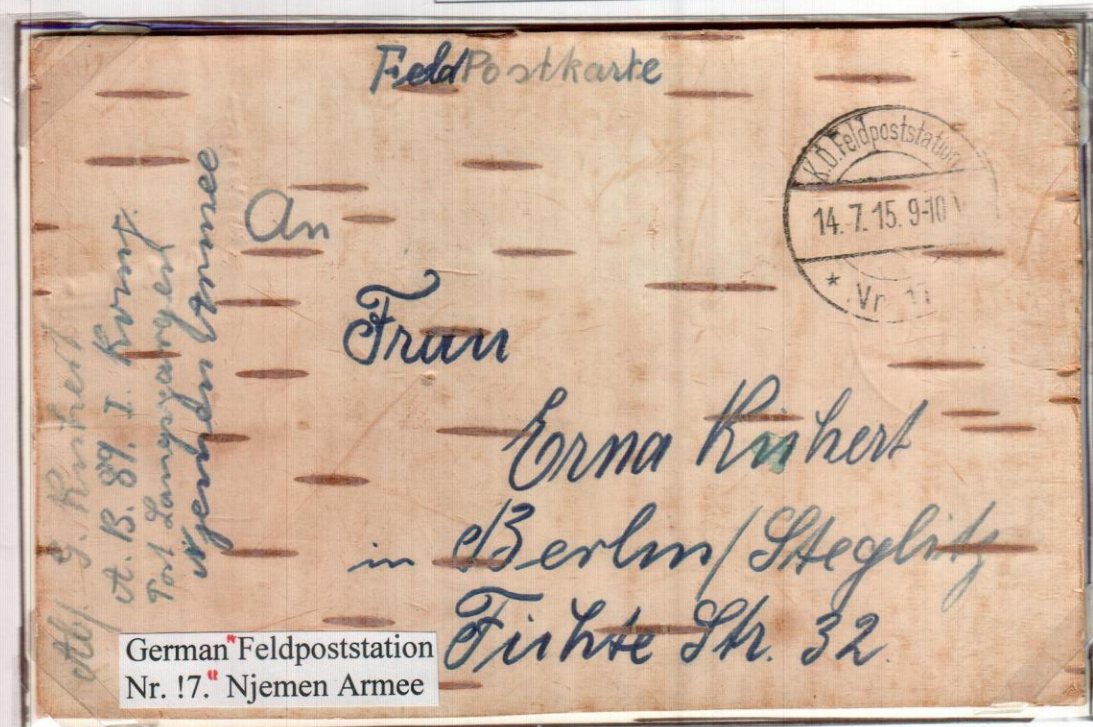 FeldPostkarte
K.D. Feldpoststation
14.7.15. 9-10 V
* Nr. 17
An
Frau
Erna Kühert
in Berlin/Steglitz
Fichte Str. 32.
Abs. G. Kühert
A. B. 89. I.
Post
Njemen Armee
German "Feldpoststation
Nr. !7." Njemen Armee